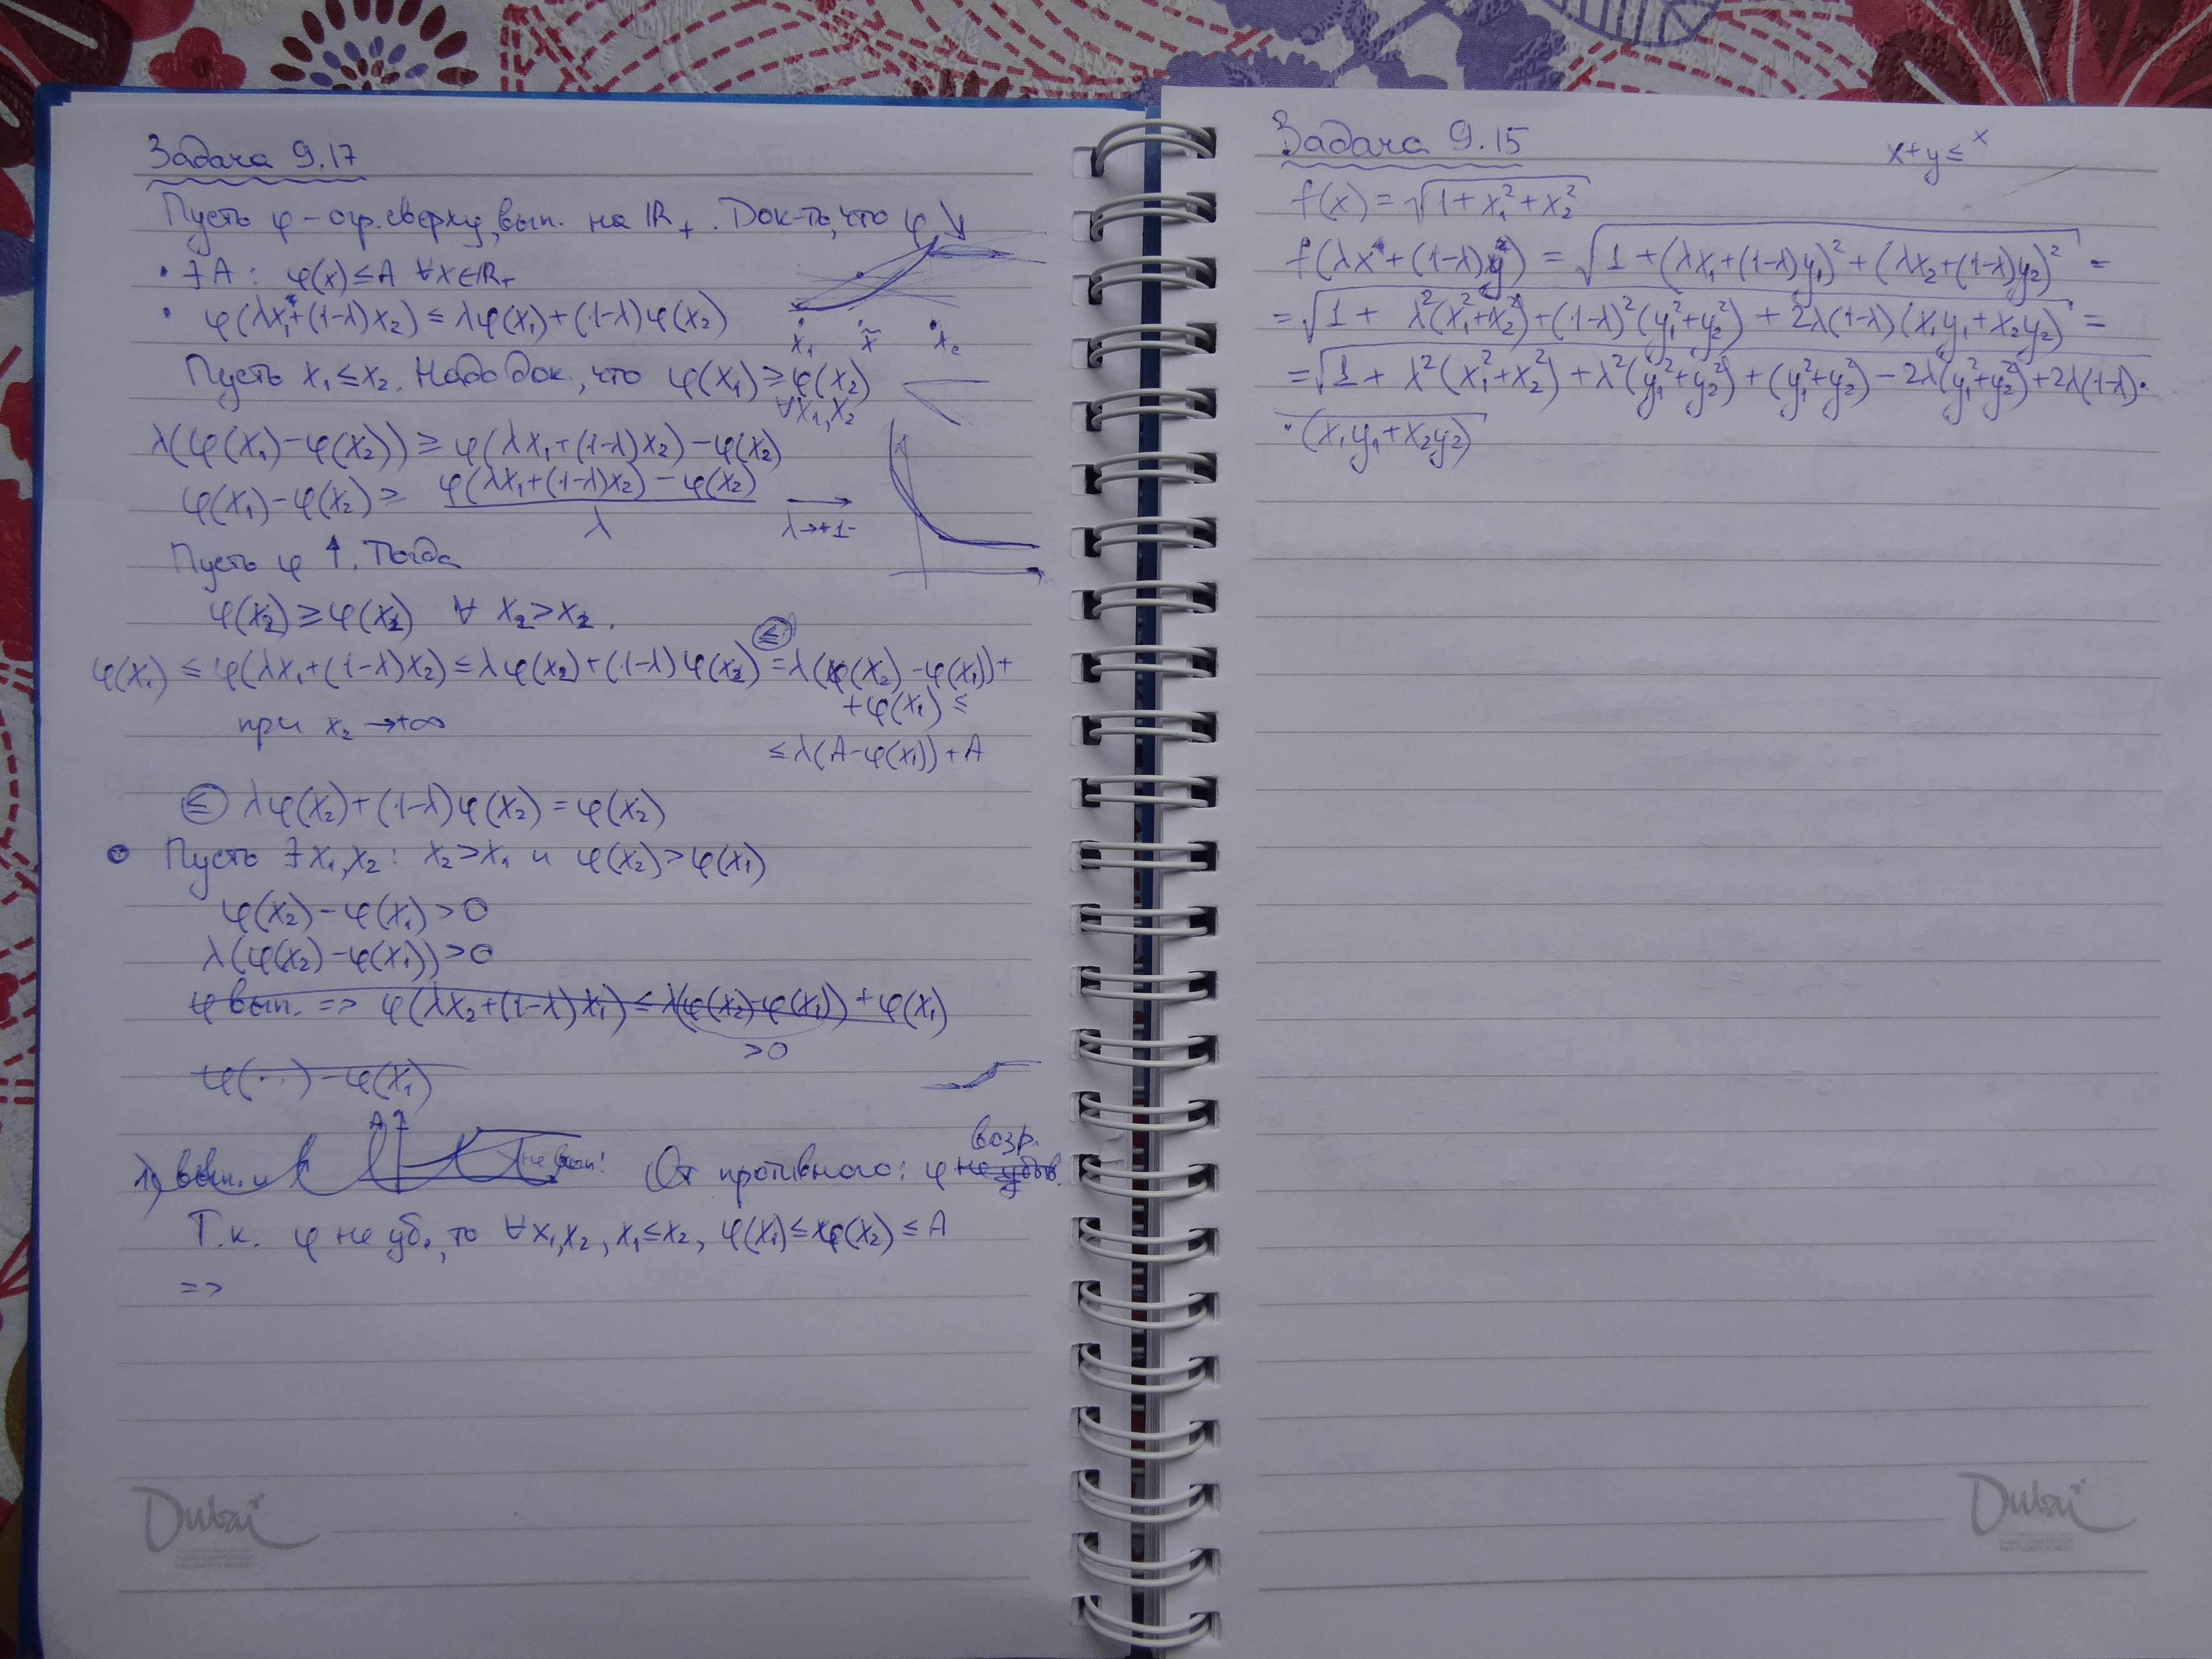 Задача 9.17
Пусть φ – огр. сверху, вып. на ℝ₊. Док-ть, что φ ↘
• ∃ A : φ(x) ≤ A ∀x∈ℝ₊
• φ(λx₁+(1-λ)x₂) ≤ λφ(x₁)+(1-λ)φ(x₂)
x₁ x̃ x₂
Пусть x₁ ≤ x₂. Надо док, что φ(x₁) ≥ φ(x₂)
∀x₁,x₂
λ(φ(x₁) - φ(x₂)) ≥ φ(λx₁+(1-λ)x₂) - φ(x₂)
φ(x₁) - φ(x₂) ≥ φ(λx₁+(1-λ)x₂) - φ(x₂) / λ → λ→+1-
Пусть φ ↑. Тогда
φ(x₂) ≥ φ(x₂) ∀ x₂ > x₂.
φ(x₁) ≤ φ(λx₁+(1-λ)x₂) ≤ λφ(x₂)+(1-λ)φ(x₂) (≤) = λ(φ(x₂) - φ(x₁)) +
+ φ(x₁) ≤
при x₂ → +∞
≤ λ(A - φ(x₁)) + A
(≤) λφ(x₂)+(1-λ)φ(x₂) = φ(x₂)
• Пусть ∃ x₁,x₂ : x₂ > x₁ и φ(x₂) > φ(x₁)
φ(x₂) - φ(x₁) > 0
λ(φ(x₂) - φ(x₁)) > 0
φ вып. => φ(λx₂+(1-λ)x₁) ≤ λ(φ(x₂) - φ(x₁)) + φ(x₁)
>0
φ(...) - φ(x₁)
A
1) вып. и
не вып!
От противного: φ не убыв. возр.
Т.к. φ не уб., то ∀x₁,x₂, x₁ ≤ x₂, φ(x₁) ≤ φ(x₂) ≤ A
=>
Dubai
Задача 9.15
x+y ≤ x
f(x) = √(1+x₁²+x₂²)
f(λx+(1-λ)y) = √(1+(λx₁+(1-λ)y₁)²+(λx₂+(1-λ)y₂)²) =
= √(1 + λ²(x₁²+x₂²)+(1-λ)²(y₁²+y₂²) + 2λ(1-λ)(x₁y₁+x₂y₂)) =
= √(1 + λ²(x₁²+x₂²) + λ²(y₁²+y₂²) + (y₁²+y₂²) - 2λ(y₁²+y₂²) + 2λ(1-λ)·
·(x₁y₁+x₂y₂)
Dubai